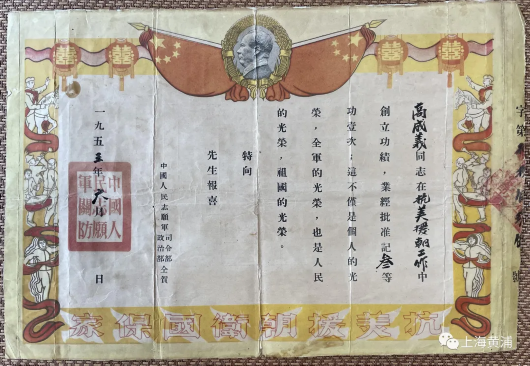 囍 囍 囍 囍
字第
號
高成義同志在抗美援朝工作中
創立功績，業經批准記叁等
功壹次；這不僅是個人的光
榮，全軍的光榮，也是人民
的光榮，祖國的光榮。
特向
先生報喜
中國人民志願軍
司令部
政治部
仝賀
一九五三年 日
中國人
民志願
軍關防
抗美援朝衛國保家
上海黄浦